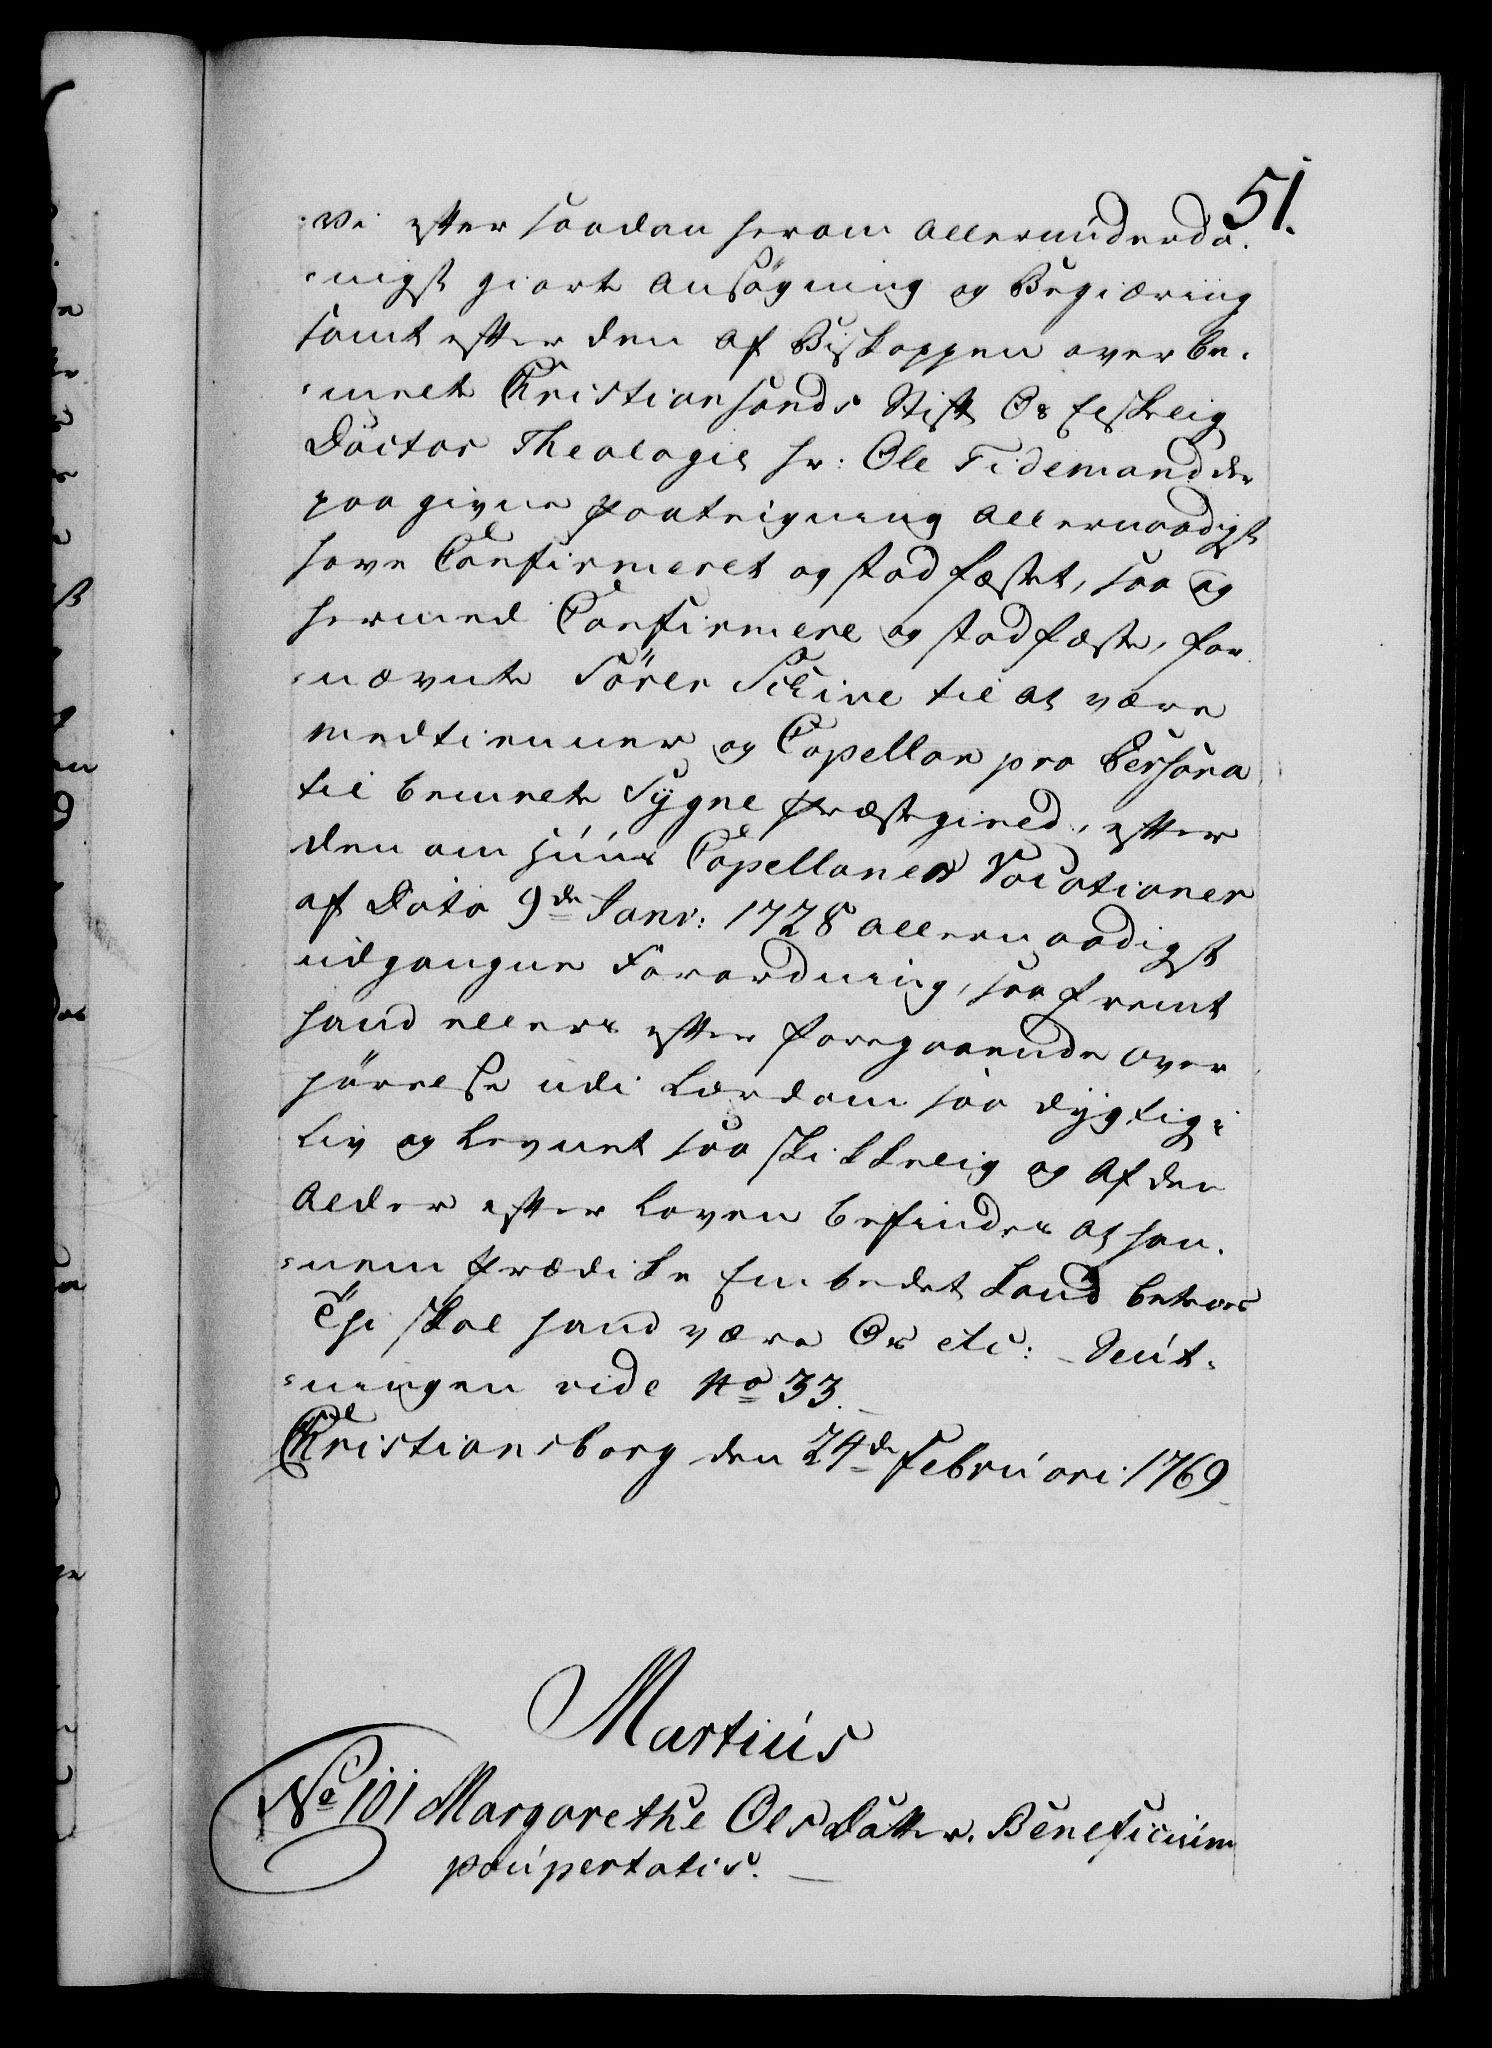 51.
Vi efter saadan herom allerunderda-
-nigst giorte Ansøgning og Begiæring
samt efter den af Biskoppen over be-
-melte Christiansands Stift Os Elskelig
Doctor Theologiæ Hr: Ole Tidemand der
paa givne Paategning allernaadigst
have Confirmeret og stadfæstet, saa og
hermed Confirmere og stadfæste, for
-nævnte Sören Schive til at være
Medtienner og Capellan pro Persona
til bemelte Sygne Præstegield, efter
den om Huus Capellaners Vocationer
af Dato 9de Janv: 1728 allernaadigst
udgangne Forordning, saa fremt
hand ellers efter foregaaende Over
hørelse udi Lærdom saa dygtig i
Liv og Levnet saa skikkelig og af den
Alder efter Loven befindes at han-
-nem Prædike Embedet kand betroes
Thi skal hand være Os etc: Slut-
-ningen vide No 33.
Christiansborg den 24de Februari 1769
Martius
No 101 Margarethe Olsdatter. Beneficium
paupertatis.